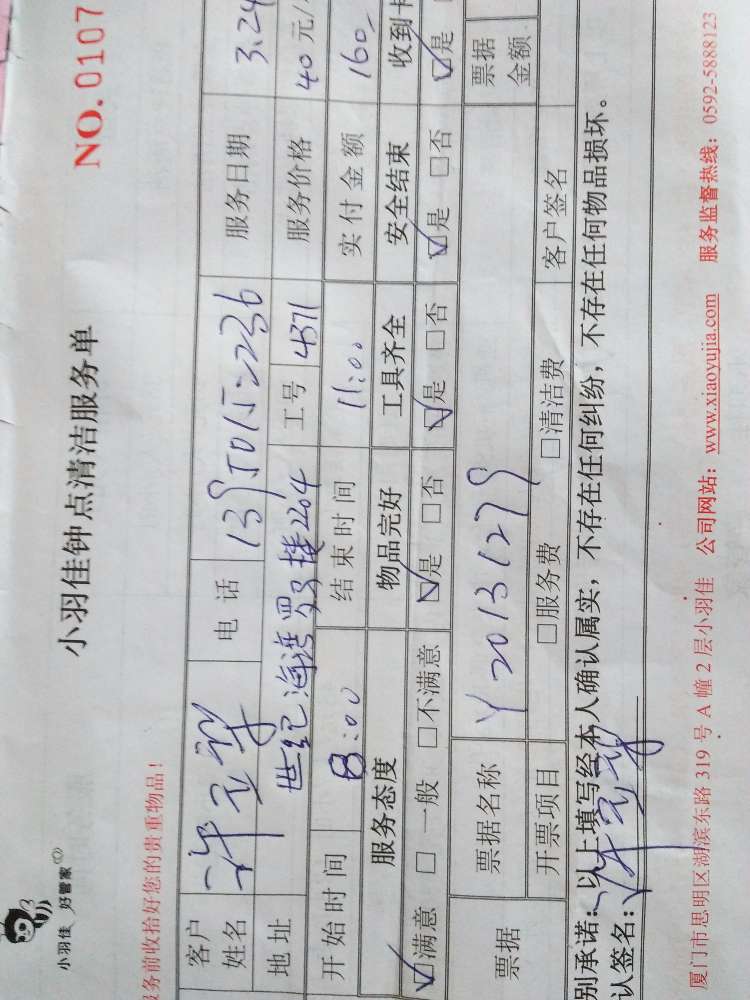 小羽佳 好管家
小羽佳钟点清洁服务单
NO.0107
服务前收拾好您的贵重物品！
客户姓名 电话 服务日期 3.24
地址 世纪海湾 楼2204 工号 4371 服务价格 40元/
开始时间 8:00 结束时间 11:00 实付金额 160
服务态度 物品完好 工具齐全 安全结束 收到卡
☑满意 □一般 □不满意 ☑是 □否 ☑是 □否 ☑是 □否 ☑是
票据 票据名称 Y20131279 票据金额
开票项目 □服务费 □清洁费 客户签名
别承诺：以上填写经本人确认属实，不存在任何纠纷，不存在任何物品损坏。
认签名：
厦门市思明区湖滨东路 319 号 A 幢 2 层小羽佳 公司网站：www.xiaoyujia.com 服务监督热线：0592-5888123